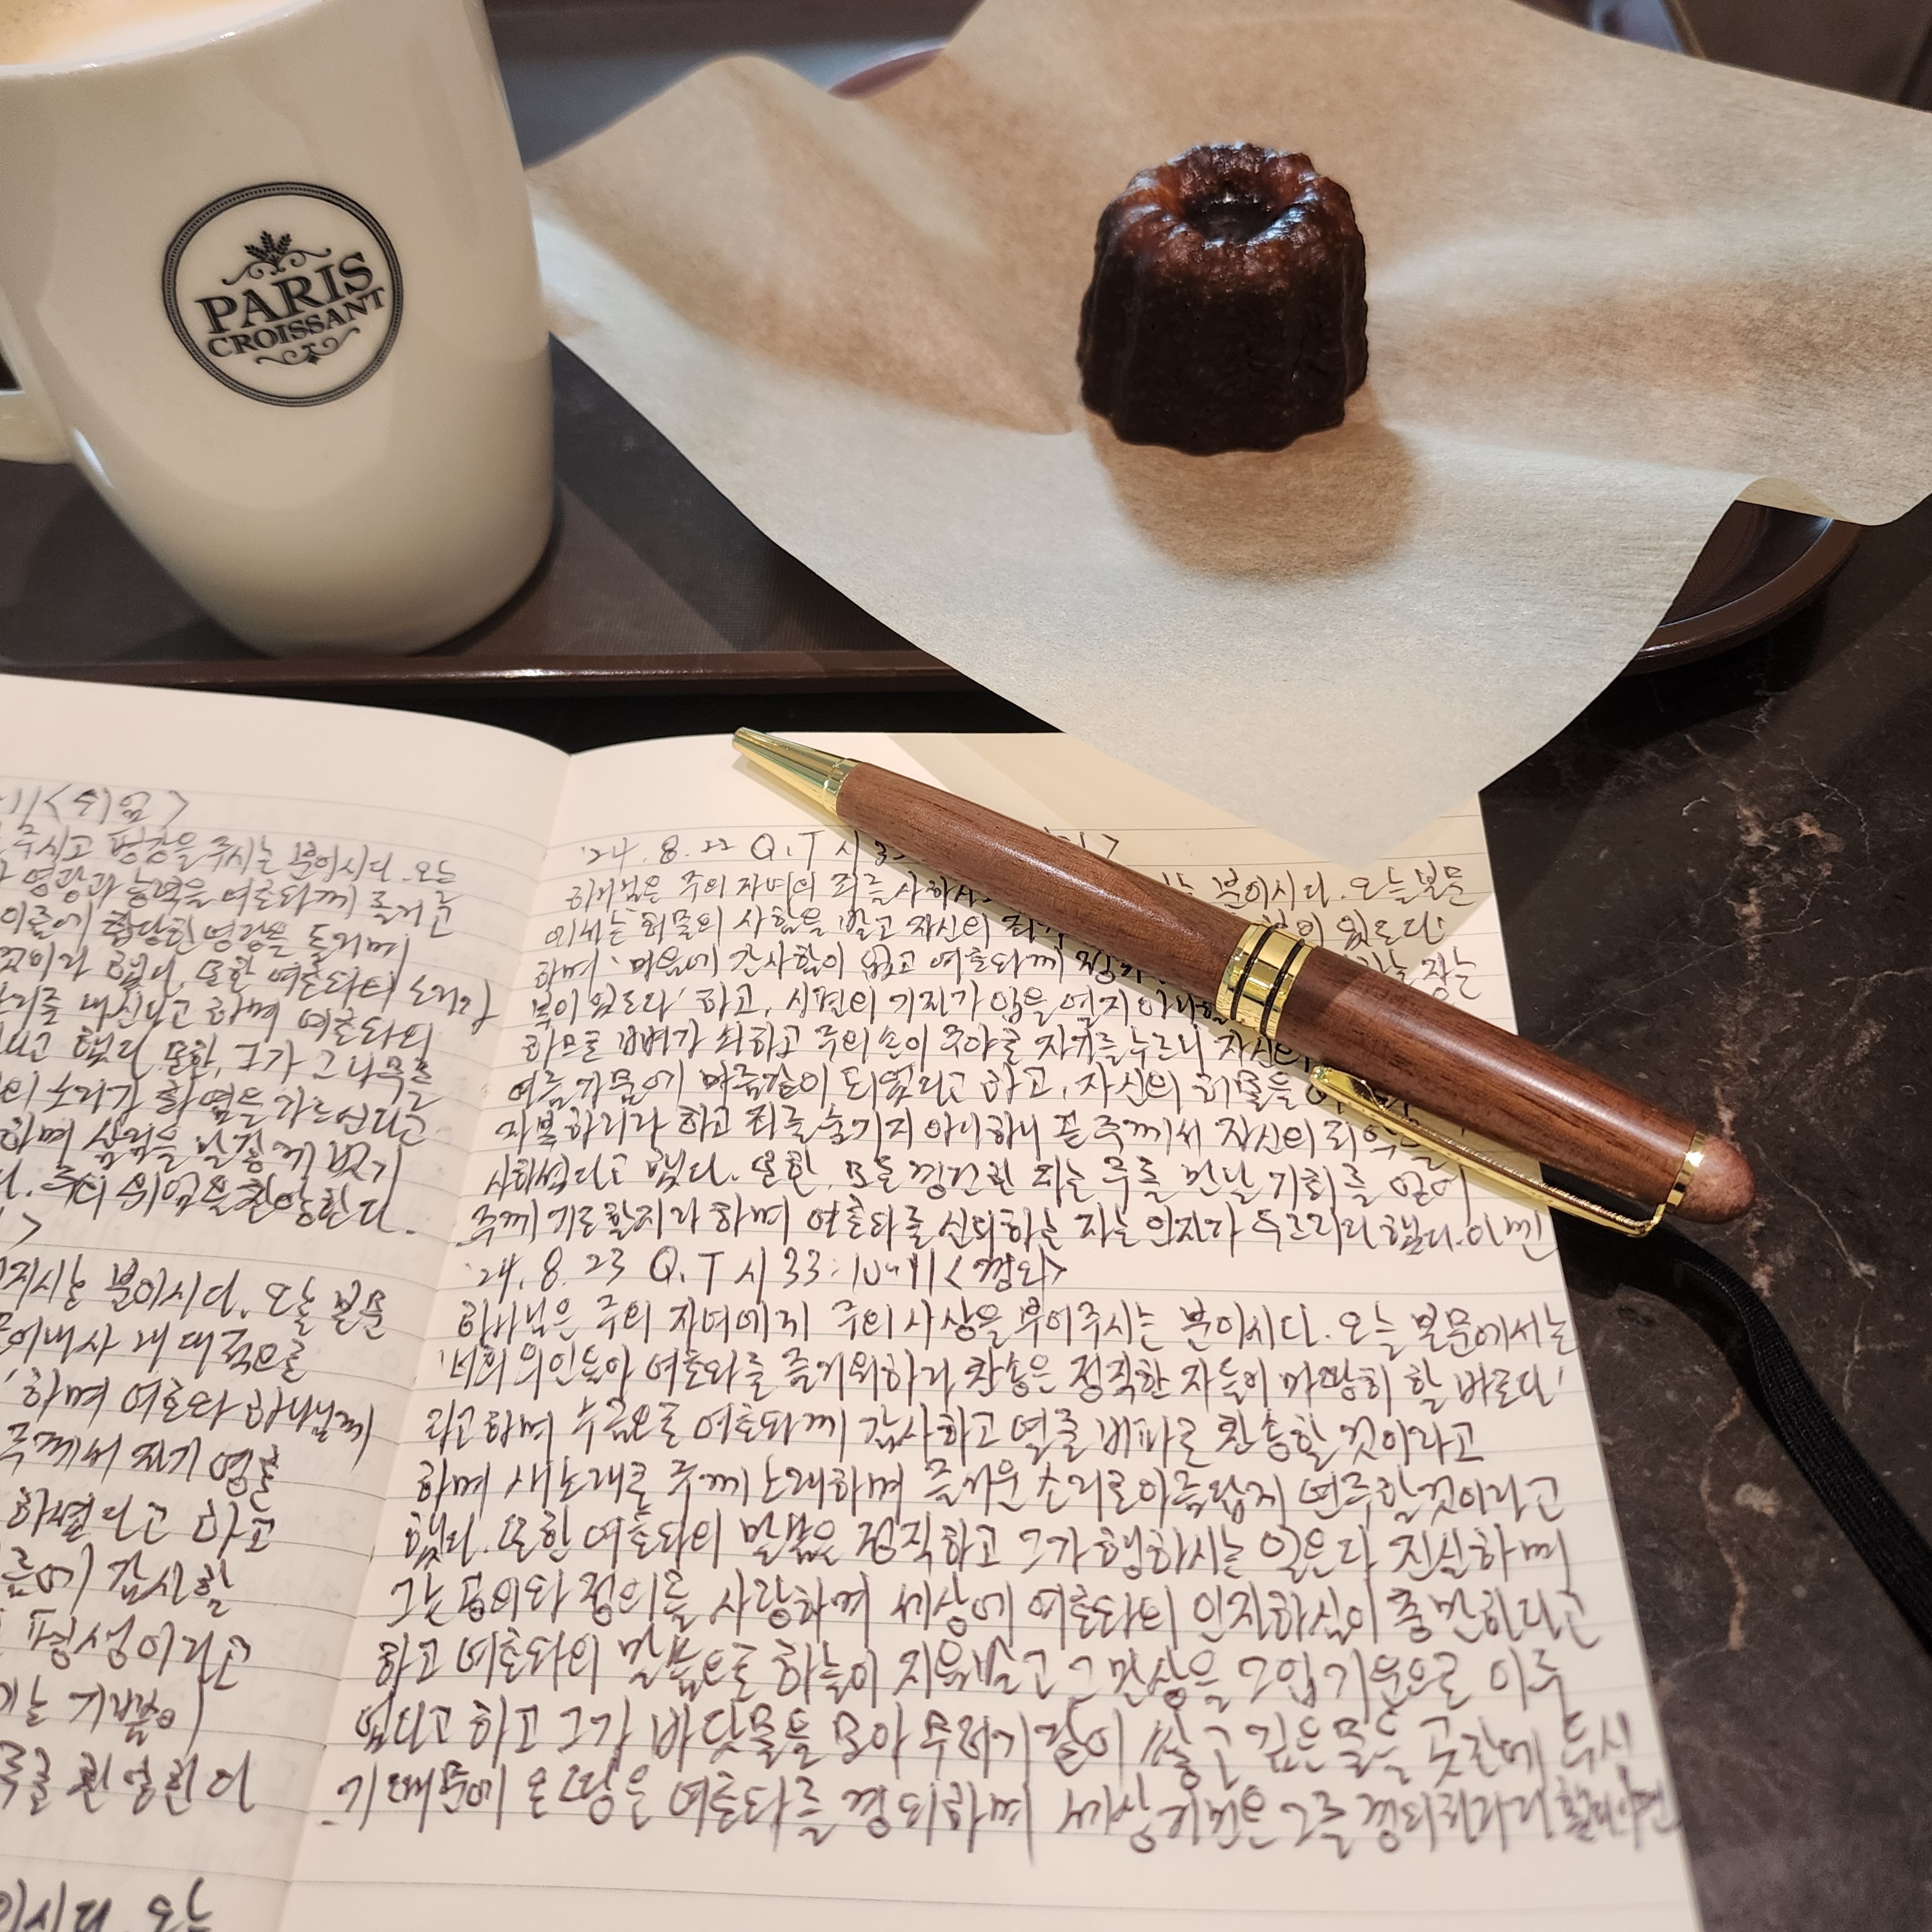 PARIS
CROISSANT
<위엄>
주시고 평강을 주시는 분이시다. 오늘
영광과 능력을 여호와께 돌리고
이름에 합당한 영광을 돌리며
것이라 했다. 또한 여호와의 소리가
소리를 내신다고 하며 여호와의
했다. 또한, 그가 그 나무를
의 소리가 화염을 가르신다고
하며 삼림을 말갛게 벗기
다. 주의 위엄을 찬양한다.
>
지시는 분이시다. 오늘 본문
내사 내 대적으로
'하며 여호와 하나님께
주께서 영혼
하셨다고 하고
감사할
평생이라고
기쁨이
다
이시다. 오늘
'24. 8. 22 Q.T 시 32 >
하나님은 주의 자녀의 죄를 사하시 는 분이시다. 오늘 본문
에서는 '허물의 사함을 받고 자신의 죄가 복이 있도다'
하며 '마음에 간사함이 없고 여호와께 정죄 자는
복이 있도다' 하고, 시편의 기자가 입을 열지 아니
하므로 뼈가 쇠하고 주의 손이 주야로 자기를 누르니 자신의
여름 가뭄에 마름같이 되었다고 하고, 자신의 허물을
자복하리라 하고 죄를 숨기지 아니하니 곧 주께서 자신의 죄악을
사하셨다고 했다. 또한, 모든 경건한 자는 주를 만날 기회를 얻어
주께 기도할지라 하며 여호와를 신뢰하는 자는 인자가 두르리라 했다.
'24. 8. 23 Q.T 시 33:10-11 <경외>
하나님은 주의 자녀에게 주의 사상을 부어주시는 분이시다. 오늘 본문에서는
'너희 의인들아 여호와를 즐거워하라 찬송은 정직한 자들이 마땅히 할 바로다'
라고 하며 수금으로 여호와께 감사하고 열줄 비파로 찬송할 것이라고
하며 새 노래로 주께 노래하며 즐거운 소리로 아름답게 연주할 것이라고
했다. 또한 여호와의 말씀은 정직하고 그가 행하시는 일은 다 진실하며
그는 공의와 정의를 사랑하며 세상에 여호와의 인자하심이 충만하다고
하고 여호와의 말씀으로 하늘이 지음받고 그 만상을 그 입 기운으로 이루
었다고 하고 그가 바닷물을 모아 무더기 같이 쌓고 깊은 물을 곳간에 두시
기 때문에 온 땅은 여호와를 경외하며 세상 거민은 그를 경외하라